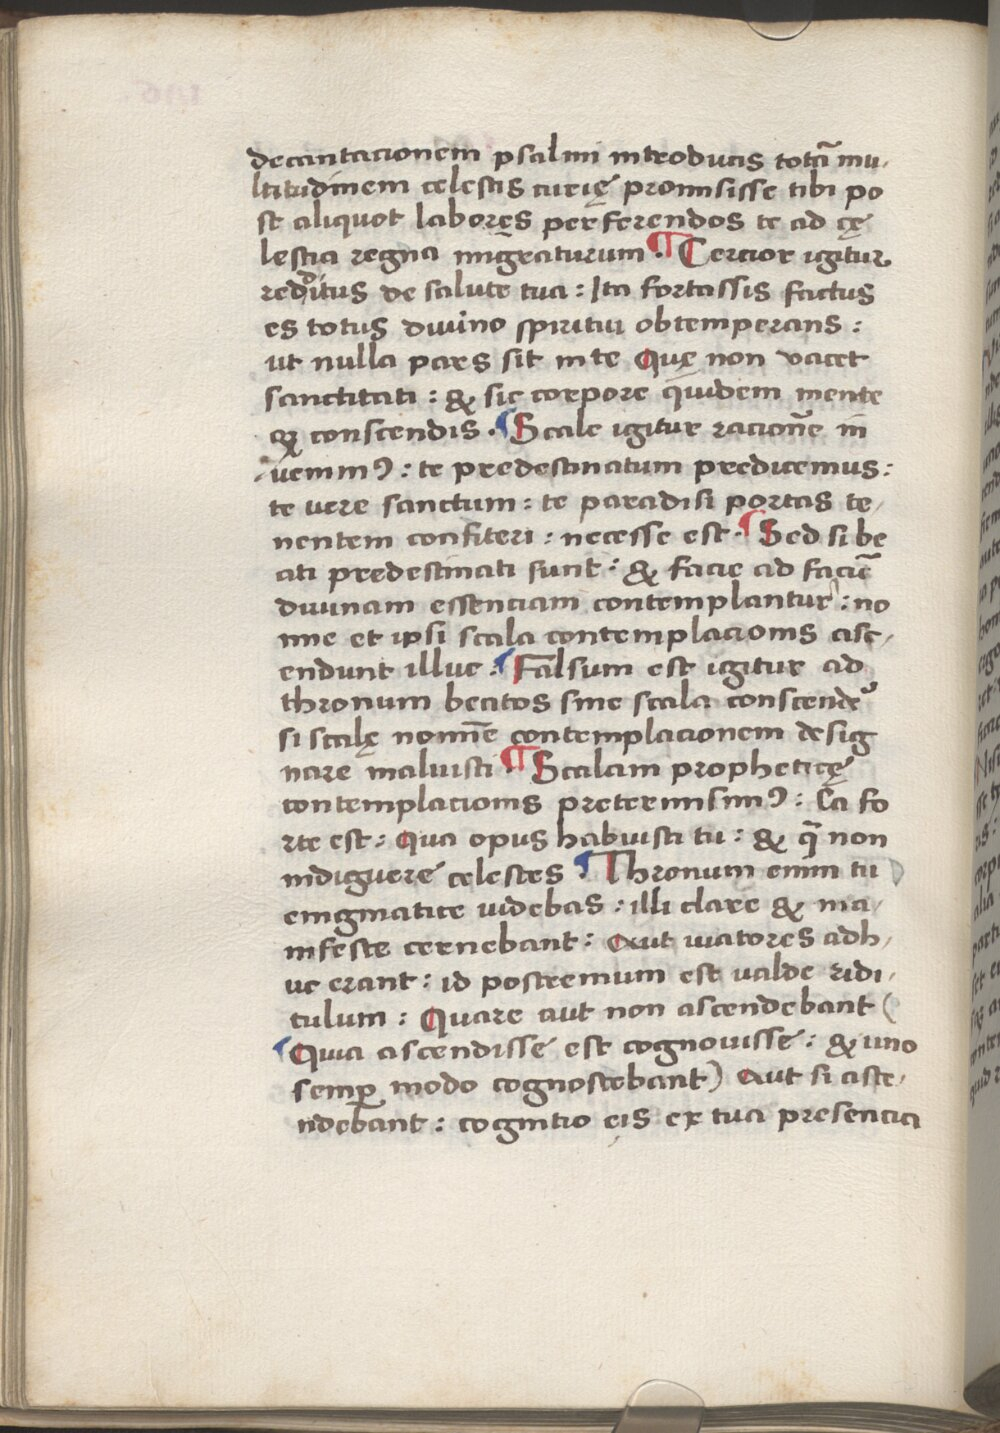 decantacionem psalmi introducis totā mu,
ltitudinem celestis curię promisisse tibi po
st aliquot labores perferendos te ad cę
lestia regna migraturum. ¶ Tercior igitur
redditus de salute tua: Ita fortassis factus
es totus diuino spiritui obtemperans:
ut nulla pars sit in te Quę non vacet
sanctitati: & sic corpore quidem mente
qȝ conscendis. ¶ Scale igitur racione in
uenimꝰ: te predestinatum predicemus:
te vere sanctum: te paradisi portas te,
nentem confiteri: necesse est. ¶ Sed si be
ati predestinati sunt: & facie ad faciē
diuinam essenciam contemplantur: no
nne et ipsi scala contemplacionis asc,
endunt illuc: ¶ Falsum est igitur ad
thronum beatos sine scala conscendeꝰ
si scalę nomīe contemplacionem desig
nare maluisti. ¶ Scalam propheticę
contemplacionis pretermisimꝰ: Ea fo
rte est: Qua opus habuisti tu: & q̄ non
indiguere celestes. ¶ Thronum enim tu
enigmatice uidebas: illi clare & ma,
nifeste cernebant: Aut uiatores adh,
uc erant: id postremum est valde ridi,
culum: Quare aut non ascendebant (
¶ Quia ascendisse est cognouisse: & uno
semꝑ modo cognoscebant) Aut si asce,
ndebant: cognitio eis ex tua presencia